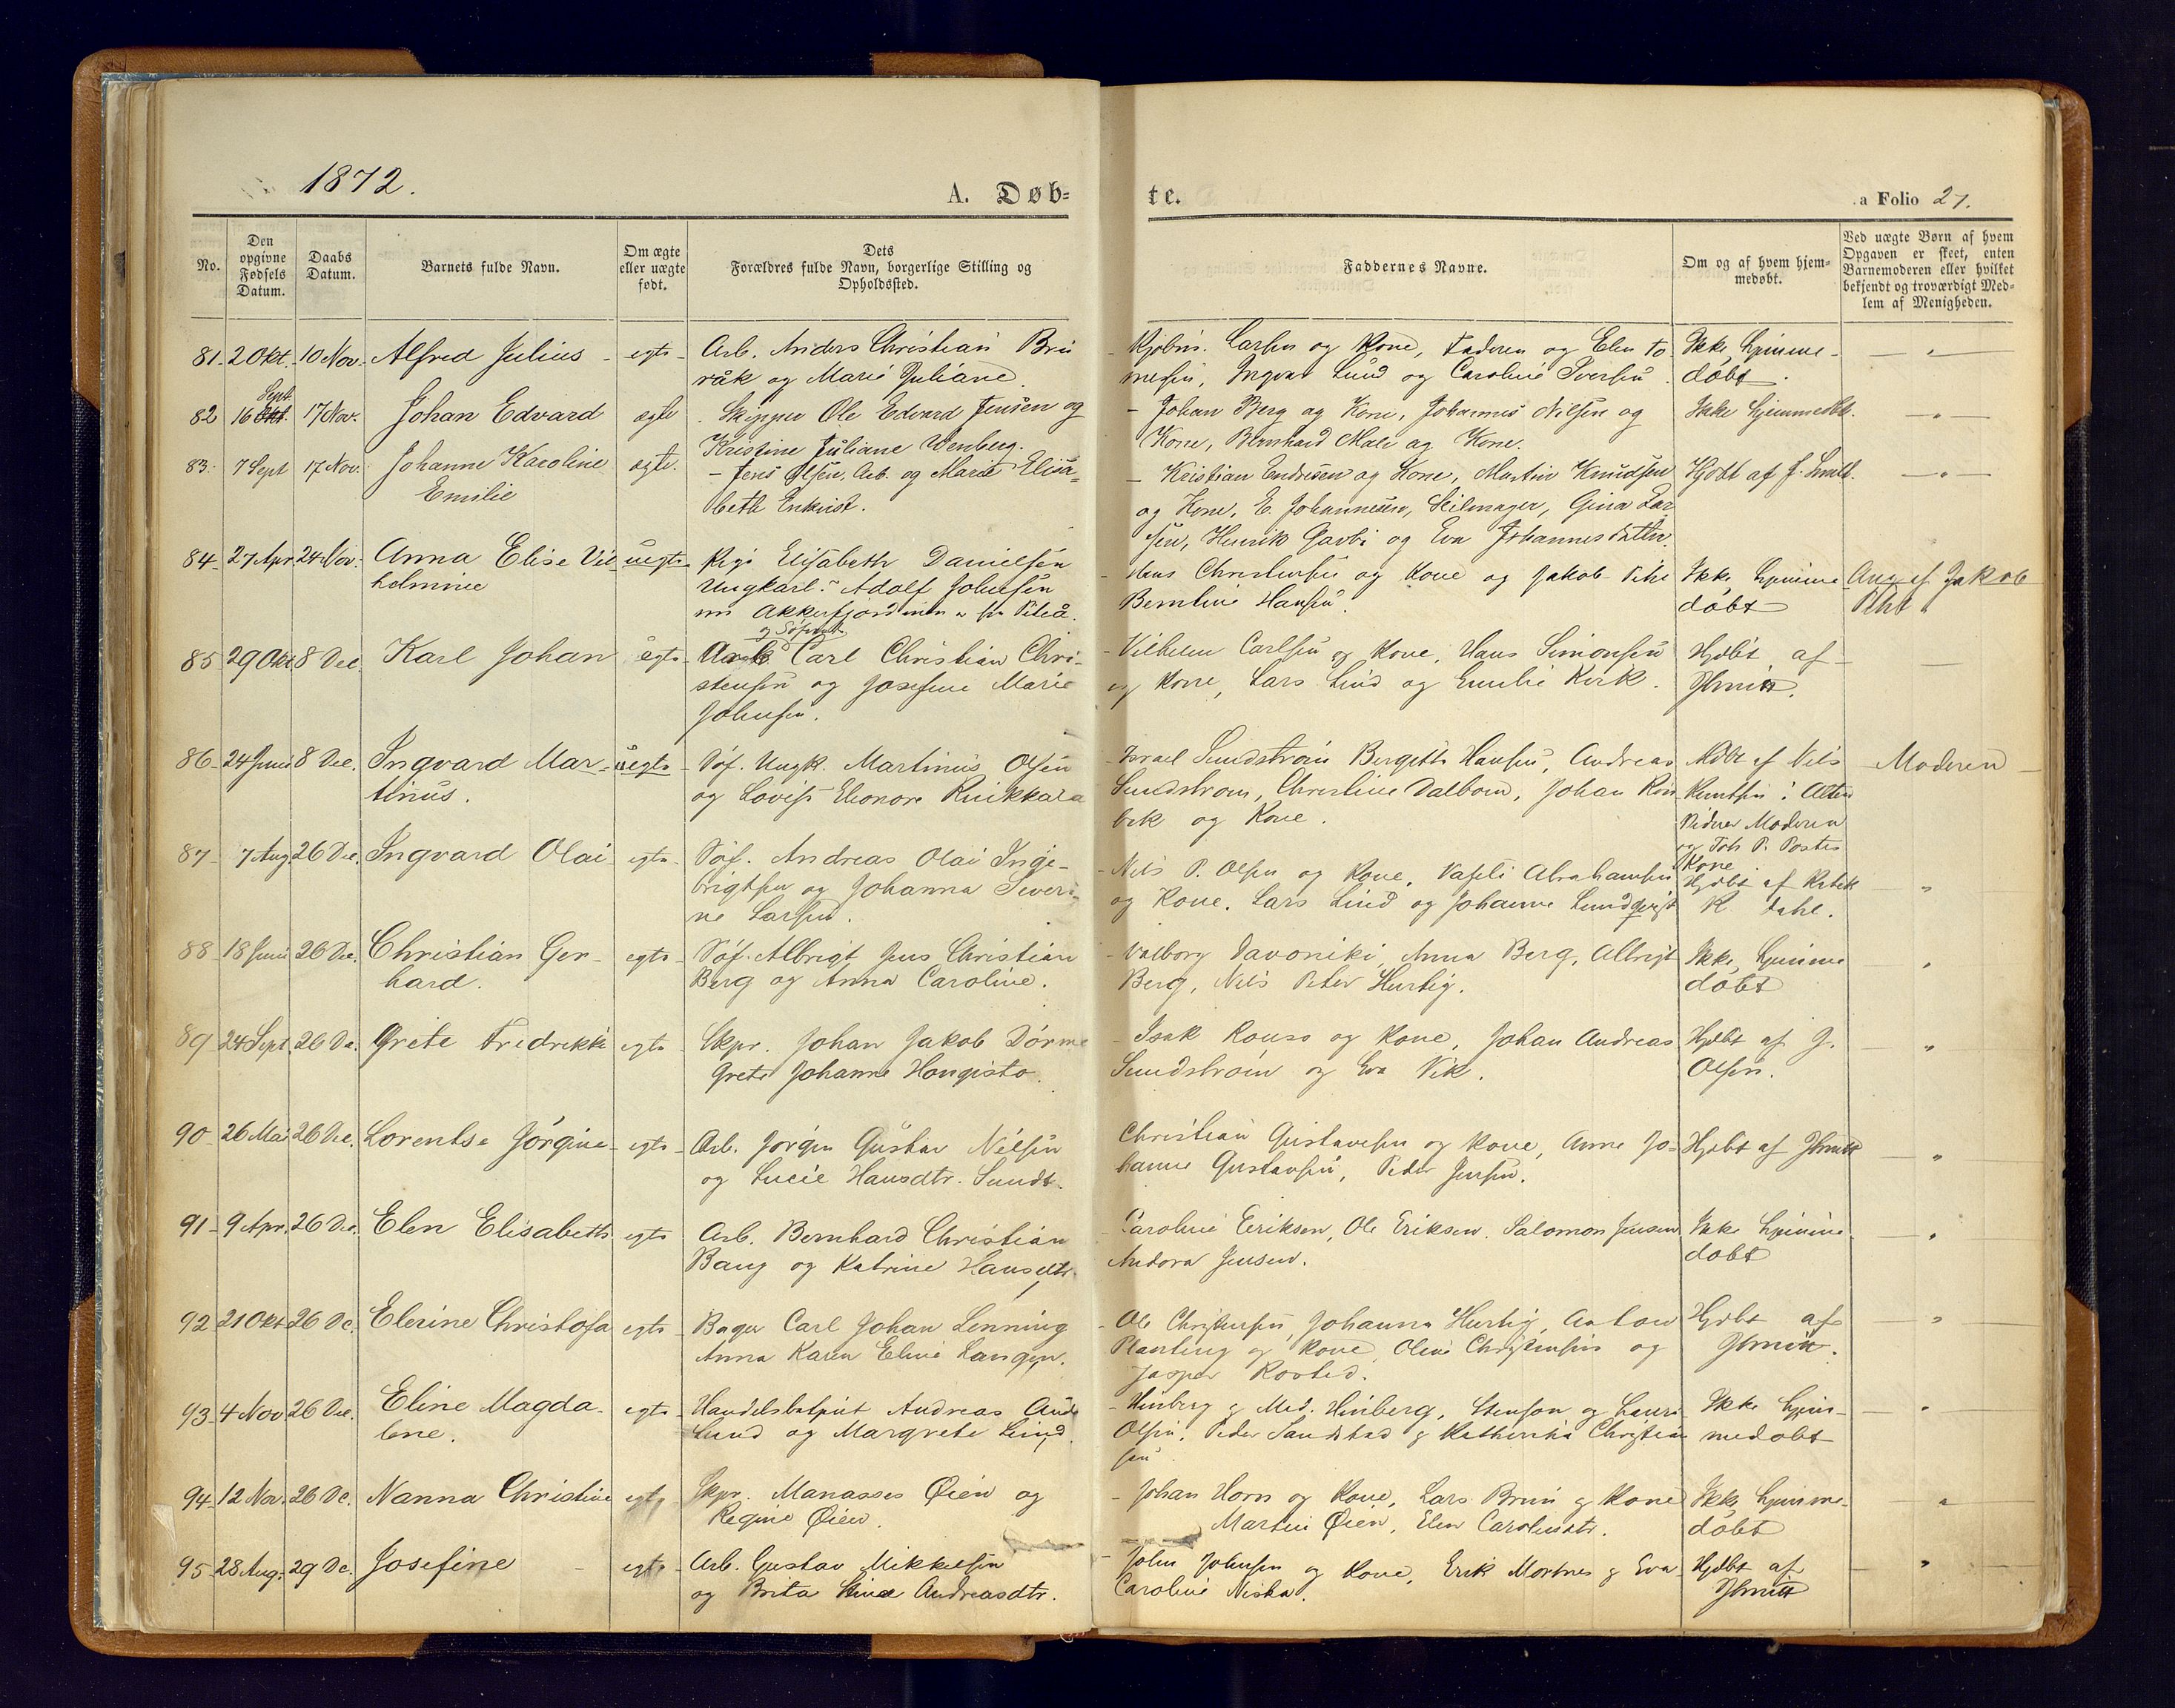 1872.
A. Døb=
te.
a Folio 27.
No.
Den opgivne Fødsels Datum.
Daabs Datum.
Barnets fulde Navn.
Om ægte eller uægte født.
Dets Forældres fulde Navn, borgerlige Stilling og Opholdssted.
Faddernes Navne.
Om og af hvem hjem=medøbt.
Ved uægte Børn af hvem Opgaven er skeet, enten Barnemoderen eller hvilket bekjendt og troværdigt Med=lem af Menigheden.
81 2 Okt. 10 Nov. Alfred Julius - egte - Arb. Anders Christian Bru
råk og Marie Juliane.
Larsen og Kone, Faderen og Elen To
mesen, Ingvar Lund og Caroline Iversen.
Ikke hjemme-
døbt.
82 16 Sept. 17 Nov. Johan Edvard egte Skipper Ole Edvard Jensen og
Kristine Juliane Wenberg.
- Johan Berg og Kone, Johannes Nilsen og
Kone, Bernhard og Kone.
Ikke hjemmedøbt.
83. 7 Sept 17 Nov. Johanne Karoline egte. - Jens Olsen, Arb. og Marie Elisa-
Emilie
beth Enkvist.
- Kristian Endresen og Kone, Martin Knudsen
og Kone, E. Johannesen, Seilmager, Gina Lar
sen, Henrik og Eva Johannesdatter.
Hjdbt af J. Smitt.
84 27 Apr 24 Nov. Anna Elise Vil uegte Pige Elisabeth Danielsen
helmine
Ungkarl Adolf Johnsen
Akkerfjord fra Piteå.
Hans Christensen og Kone og Jakob
Berntine Hansen.
Ikke hjemme
døbt
Ang. af Jakob
85 29 Okt 8 Dec. Karl Johan egte Carl Christian Chri-
stensen og Josefine Marie
Johnsen.
- Vilhelm Carlsen og Kone, Hans Simonsen
og Kone, Lars Lind og Emilie Kirk.
Hjdbt af
JSmitt.
86 24 Juni 8 Dec. Ingvard Mar- uegte - Søf. Ungk. Martinus Olsen
tinus.
og Lovise Eleonore Ruikkala
- Israel Sundstrøm Bergette Hansen, Andreas
Sundstrøm, Christine Dalbom, Johan
og Kone.
af Nils
i Alten
Moderen
Kone
Moderen
87 7 Aug 26 Dec. Ingvard Olai egte Søf. Andreas Olai Inge-
brigtsen og Johanna Severi-
ne Larsen.
- Nils P. Olsen og Kone, Abrahamsen
og Kone. Lars Lind og Johanne Lundqvist
Hjdbt af
K Dahl.
88 18 Juni 26 Dec. Christian Ger- egte Søf. Albrigt Jens Christian
hard.
Berg og Anna Caroline.
- Valborg Davoniki Anna Berg, Albrigt
Berg, Nils Peter Hurtig.
Ikke hjemme
døbt
89 24 Sept. 26 De. Grete Fredrikke egte Skpr. Johan Jakob Dørme
Grete Johanne Hongisto.
- Isak Rouso og Kone, Johan Andreas
Sundstrøm og Eva Vik.
Hjdbt af J.
Olsen.
90 26 Mai 26 Dec. Lorentse Jørgine - egte - Arb. Jørgen Gustav Nilsen
og Lucie Hansdtr. Sundt.
Christian Gustavesen og Kone, Anne Jo-
hanne Gustavsen, Peder Jensen.
Hjdbt af JSmitt
91 9 Apr. 26 Dec. Elen Elisabeth egte Arb. Bernhard Christian
Bang og Katrine Hansdtr.
Caroline Eriksen, Ole Eriksen. Salomon Jensen
Andora Jensen.
Ikke hjemme
døbt
92 21 Okt 26 De. Elerine Christofa egte Bager Carl Johan Lenning
Anna Karen Eline Langen.
- Ole Christensen, Johanna Hurtig, Anton
Planting og Kone, Oline Christensen og
Jasper Rosted.
Hjdbt af
JSmitt.
93 4 Nov 26 Dec. Eline Magda- egte Andreas
lene.
Lund og Margrete Lund.
- Hinberg og Mad. Hinberg, Stenson og
Olsen, Peder Sandstad og Katherina Christian
sen
Ikke hjem-
medøbt
94 12 Nov. 26 De. Nanna Christine egte Skpr. Manasses Øien og
Regine Øien.
- Johan Horn og Kone, Lars Brun og Kone
Martin Øien, Elen
Ikke hjemme-
døbt
95 28 Aug. 29 De. Josefine - egte Arb. Gustav Mikkelsen
og Brita Andreasdtr.
- John Johnsen og Kone, Erik Mortnes og Eva
Caroline Niska.
Hjdbt af
JSmitt